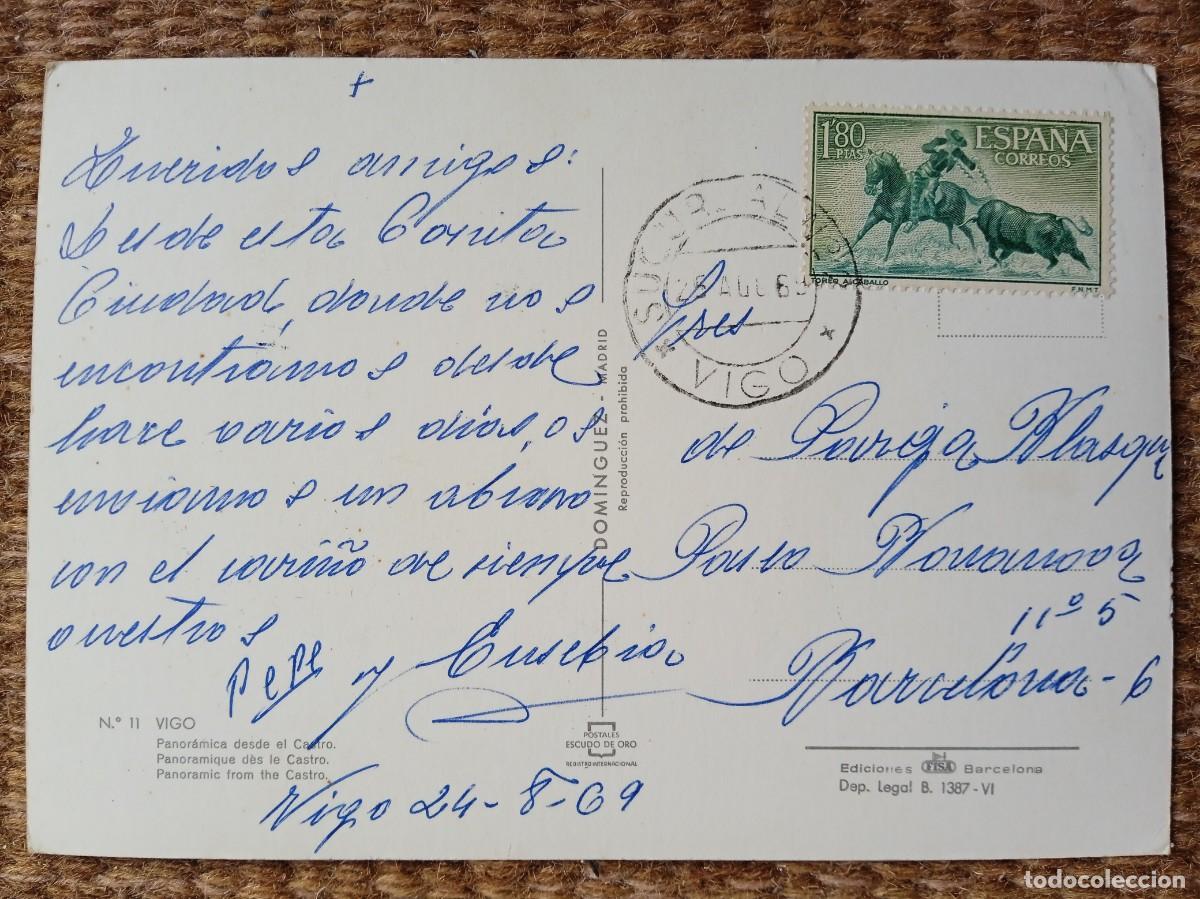 +
Queridos amigos:
Desde esta Bonita
Ciudad, donde nos
encontramos desde
hace varios días, os
enviamos un abrazo
con el cariño de siempre
vuestros
Pepe y Eusebio
Nº 11 VIGO
Panorámica desde el Castro.
Panoramique dès le Castro.
Panoramic from the Castro.
Vigo 24-8-69
DOMINGUEZ - MADRID
Reproducción prohibida
POSTALES
ESCUDO DE ORO
REGISTRO INTERNACIONAL
1'80 PTAS
ESPAÑA
CORREOS
TOREO A CABALLO
F.N.M.T.
SUCUR.
VIGO
Sres
de
Paseo
nº 5
Barcelona-6
Ediciones FISA Barcelona
Dep. Legal B. 1387-VI
todocoleccion